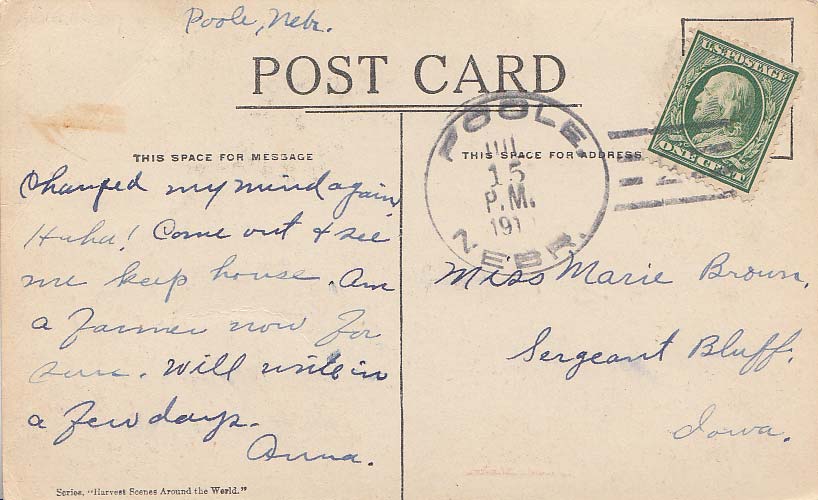 Poole, Nebr.
POST CARD
U.S. POSTAGE
ONE CENT
POOLE.
JUL
15
P.M.
191
NEBR.
THIS SPACE FOR MESSAGE
THIS SPACE FOR ADDRESS
Changed my mind again.
Haha! Come out & see
me keep house. Am
a farmer now for
sure. Will write in
a few days.
Anna.
Miss Marie Brown,
Sergeant Bluff.
Iowa.
Series, "Harvest Scenes Around the World."